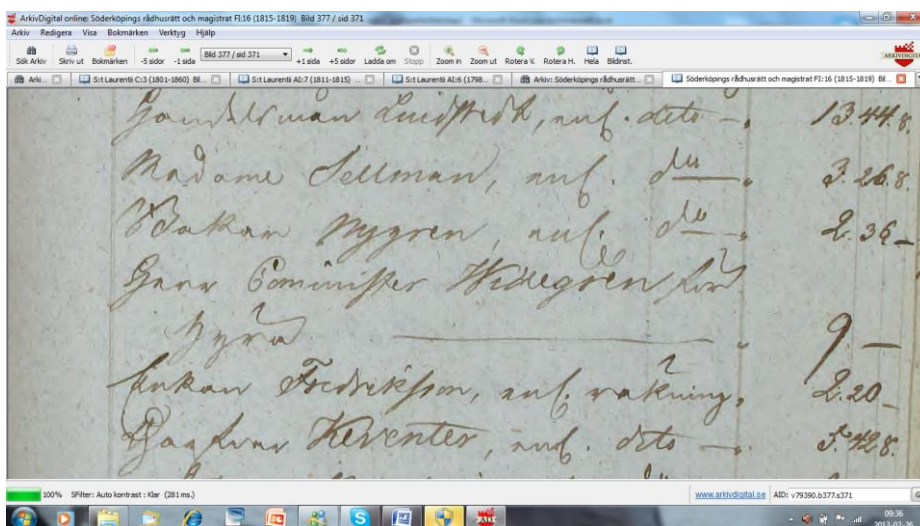 ArkivDigital online: Söderköpings rådhusrätt och magistrat FI:16 (1815-1819) Bild 377 / sid 371
Arkiv Redigera Visa Bokmärken Verktyg Hjälp
Sök Arkiv Skriv ut Bokmärken -5 sidor -1 sida Bild 377 / sid 371 +1 sida +5 sidor Ladda om Stopp Zoom in Zoom ut Rotera V. Rotera H. Hela Bildinst. ARKIVDIGITAL
Arki... S:t Laurentii C:3 (1801-1860) Bi... S:t Laurentii AI:7 (1811-1815) ... S:t Laurentii AI:6 (1798... Arkiv: Söderköpings rådhusrätt... Söderköpings rådhusrätt och magistrat FI:16 (1815-1819) Bi...
Handelsman Lindstedt, enl. dito 13.44.8.
Madame Sellman, enl. do 3.26.8.
Bakar Nygren, enl. do 2.36
Herr Cominister Widegren för
hyra 9.
Enkan Fredriksson, enl. räkning, 2.20
Keventer, enl. dito 5.42.8.
100% SFilter: Auto kontrast : Klar (281 ms.) www.arkivdigital.se AID: v79390.b377.s371
09:36